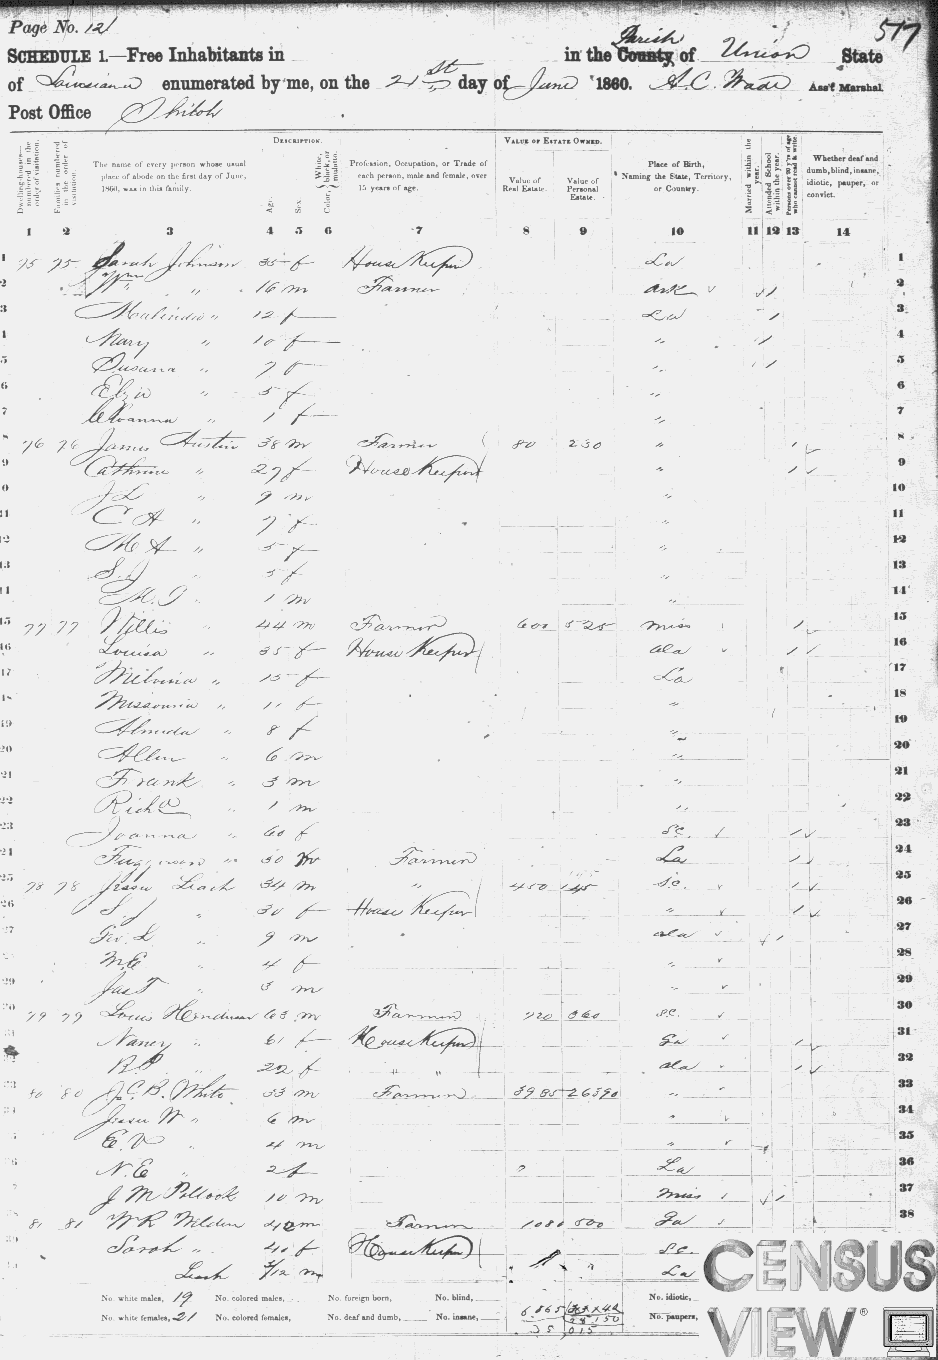 Page No. 121
517
SCHEDULE 1.—Free Inhabitants in in the County Parish of Union State
of Louisiana enumerated by me, on the 21st day of June 1860. A.C. Wade Ass't Marshal
Post Office Shiloh
DESCRIPTION. VALUE OF ESTATE OWNED.
Dwelling-houses—numbered in the order of visitation. Families numbered in the order of visitation. The name of every person whose usual place of abode on the first day of June, 1860, was in this family. Age. Sex. Color, White, black, or mulatto. Profession, Occupation, or Trade of each person, male and female, over 15 years of age. Value of Real Estate. Value of Personal Estate. Place of Birth, Naming the State, Territory, or Country. Married within the year. Attended School within the year. Persons over 20 y'rs of age who cannot read & write. Whether deaf and dumb, blind, insane, idiotic, pauper, or convict.
1 2 3 4 5 6 7 8 9 10 11 12 13 14
1 75 75 Sarah Johnson 35 f House Keeper La 1
2 Wm " 16 m Farmer Ark 1 2
3 " 12 f La 1 3
4 Mary " 10 f " 1 4
5 Susana " 7 f " 1 5
6 Eliza " 5 f " 6
7 " 1 f " 7
8 76 76 James Austin 38 m Farmer 80 230 " 1 8
9 Cathrine " 27 f House Keeper " 1 9
10 J L " 9 m " 10
11 C A " 7 f " 11
12 M A " 5 f " 12
13 S. J " 5 f " 13
14 M. J " 1 m " 14
15 77 77 Willis " 44 m Farmer 600 525 Miss 1 15
16 Louisa " 35 f House Keeper Ala 1 16
17 Melvina " 15 f La 17
18 Missouria " 11 f " 18
19 Almeda " 8 f " 19
20 Allen " 6 m " 20
21 Frank " 3 m " 21
22 Richd " 1 m " 22
23 Joanna " 60 f S.C. 1 23
24 Fuggerson " 30 m Farmer La 1 24
25 78 78 Jessee Leach 34 m " 450 145 S.C. 1 25
26 S. J " 30 f House Keeper " 1 26
27 Geo. L " 9 m Ala 1 27
28 M.E " 4 f " 28
29 Jas T " 3 m " 29
30 79 79 Louis Henderson 63 m Farmer 220 360 S.C. 30
31 Nancy " 61 f House Keeper Ga 1 31
32 B.P. " 22 f " " Ala 1 32
33 80 80 J.C.B. White 33 m Farmer 3985 26390 " 33
34 Jessee W " 6 m " 34
35 E. V " 4 m " 35
36 N. E " 2 f La 36
37 J M Pollock 10 m Miss 1 37
38 81 81 W R 40 m Farmer 1080 500 Ga 38
Sarah " 40 f House Keeper S.C.
Leach /12 m La
No. white males, 19 No. colored males, No. foreign born, No. blind, No. idiotic,
No. white females, 21 No. colored females, No. deaf and dumb, No. insane, No. paupers,
CENSUS
VIEW®